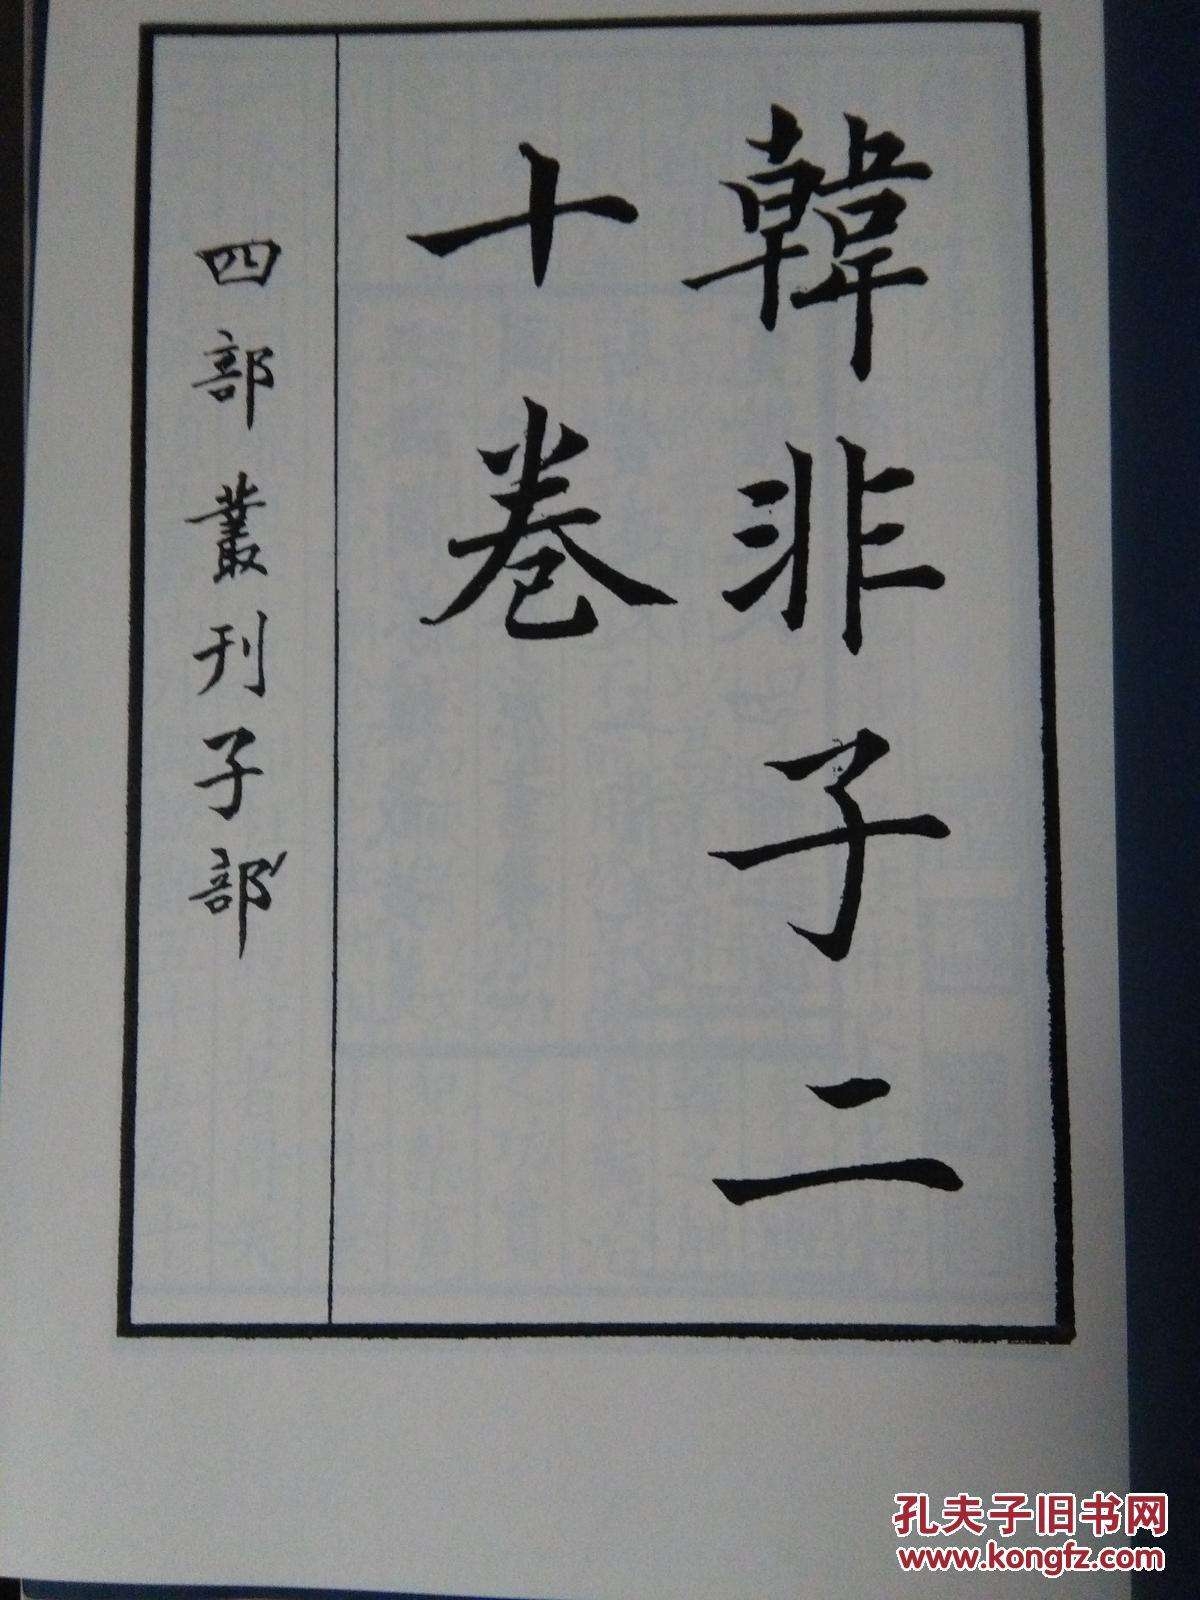 韓非子二
十卷
四部叢刊子部
孔夫子旧书网
www.kongfz.com